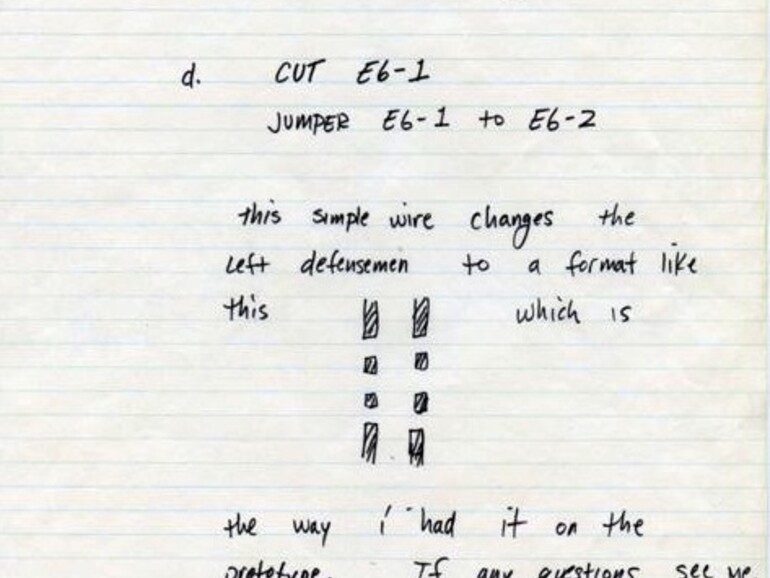 d. CUT E6-1
JUMPER E6-1 to E6-2
this simple wire changes the
left defensemen to a format like
this which is
the way i had it on the
prototype. If any questions see me.